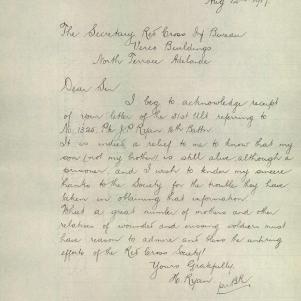 Aug 22nd 1917.
The Secretary Red Cross Inf Bureau
Verco Buildings
North Terrace Adelaide
Dear Sir
I beg to acknowledge receipt
of your letter of the 31st Ult referring to
No 1325. Pte J.P Ryan 16th Battn.
It is indeed a relief to me to know that my
son (not my brother) is still alive, although a
prisoner, and I wish to tender my sincere
thanks to the Society for the trouble they have
taken in obtaining that information.
What a great number of mothers and other
relatives of wounded and missing soldiers must
have reason to admire and bless the untiring
efforts of the Red Cross Society!
Yours Gratefully.
H. Ryan